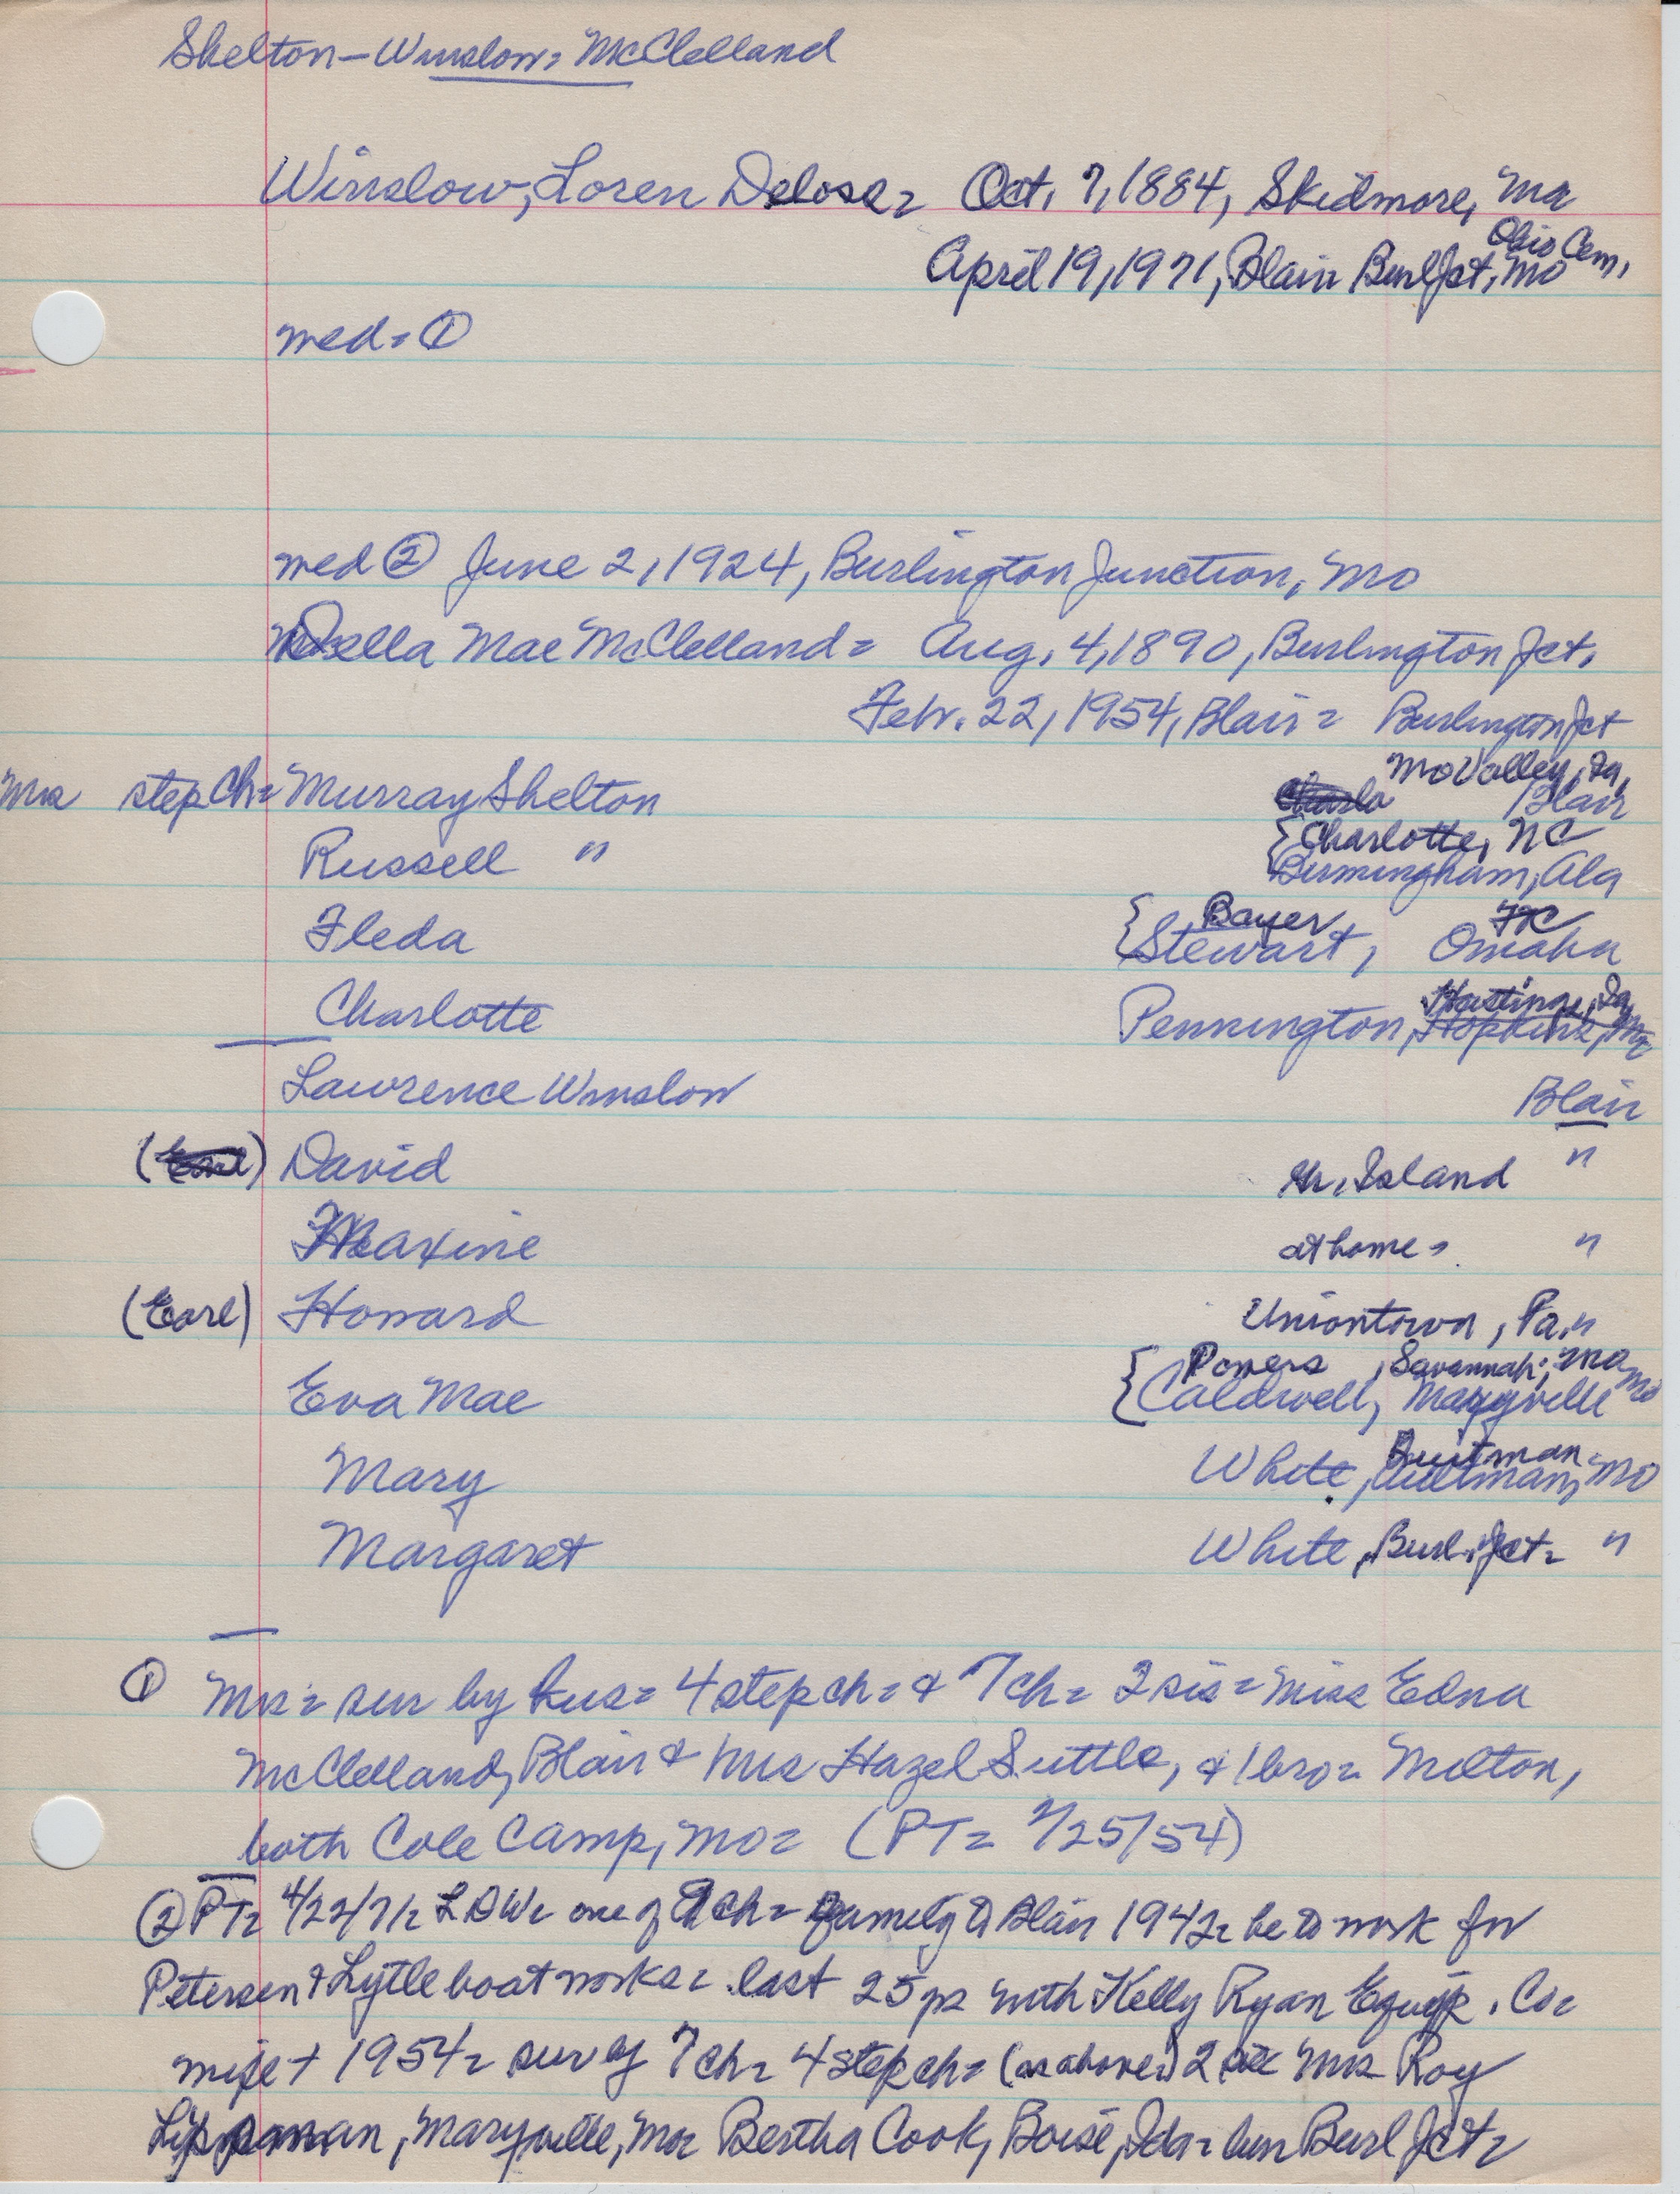 Shelton - Winslow = McClelland
Winslow, Loren Delose = Oct. 7, 1884, Skidmore, Mo
Ohio Cem,
April 19, 1971, Blair Burl Jct, Mo
med = ①
med ② June 2, 1924, Burlington Junction, Mo
Della Mae McClelland = Aug. 4, 1890, Burlington Jct.
Febr. 22, 1954, Blair = Burlington Jct
Mo Valley, Ia,
Mrs step Ch = Murray Shelton Blair
{ Charlotte, NC
Russell " Birmingham, Ala
{ Bayer
Fleda Stewart, Omaha
Hastings, Ia
Charlotte Pennington, Hopkins, Mo
Lawrence Winslow Blair
(Earl) David Gr. Island "
Maxine at home = "
(Earl) Howard Uniontown, Pa. "
{ Powers, Savannah, Mo
Eva Mae Caldwell, Maryville Mo
Quitman
Mary White, Quitman, Mo
Margaret White, Burl. Jct = "
① Mrs = sur by hus = 4 step ch = & 7 ch = 2 sis = Miss Edna
McClelland, Blair & Mrs Hazel Suttle, & 1 bro = Milton,
both Cole Camp, Mo = (PT = 2/25/54)
② PT = 4/22/71 = LDW = one of 9 ch = family to Blair 1942 = he to work for
Petersen & Lytle boat works = last 25 ys with Kelly Ryan Equip. Co =
wife + 1954 = sur by 7 ch = 4 step ch = (as above) 2 sis Mrs Roy
Lippman, Maryville, Mo = Bertha Cook, Boise, Ida = bur Burl Jct =